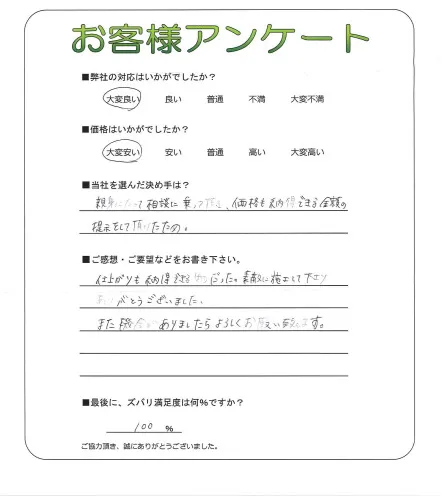 お客様アンケート
■弊社の対応はいかがでしたか?
大変良い 良い 普通 不満 大変不満
■価格はいかがでしたか?
大変安い 安い 普通 高い 大変高い
■当社を選んだ決め手は?
親身になって相談に乗って頂き、価格も納得できる金額の
提示をして頂けたの。
■ご感想・ご要望などをお書き下さい。
仕上がりも納得できる だった。素敵に施工して下さり
ありがとうございました。
また機会がありましたらよろしくお願い致します。
■最後に、ズバリ満足度は何%ですか?
100 %
ご協力頂き、誠にありがとうございました。